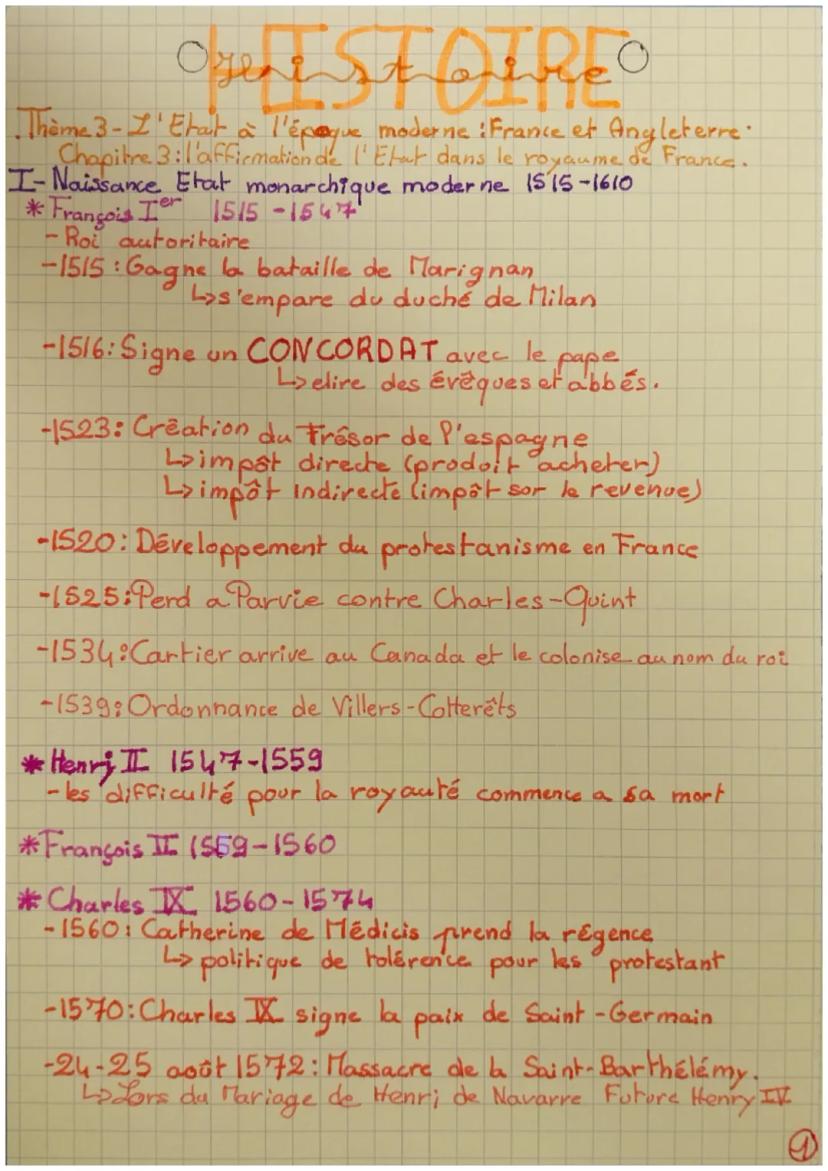 HISTOIRE
Histoire
.Thème 3 - L'Etat à l'époque moderne : France et Angleterre.
Chapitre 3 : l'affirmation de l'Etat dans le royaume de France.
I- Naissance Etat monarchique moderne 1515-1610
* François Ier 1515-1547
- Roi autoritaire
-1515 : Gagne la bataille de Marignan
↳s'empare du duché de Milan
-1516: Signe un CONCORDAT avec le pape
↳elire des évêques et abbés.
-1523: Création du Trésor de l'espagne
↳impôt directe (produit acheter)
↳impôt indirecte (impôt sur le revenue)
-1520: Développement du protestanisme en France
-1525: Perd a Parvie contre Charles-Quint
-1534: Cartier arrive au Canada et le colonise au nom du roi
-1539: Ordonnance de Villers-Cotterêts
* Henri II 1547-1559
- les difficulté pour la royauté commence a sa mort
* François II 1559-1560
* Charles IX 1560-1574
-1560: Catherine de Médicis prend la régence
↳ politique de tolérence pour les protestant
-1570: Charles IX signe la paix de Saint-Germain
-24-25 août 1572: Massacre de la Saint-Barthélémy.
↳Lors du Mariage de Henri de Navarre Future Henry IV
1